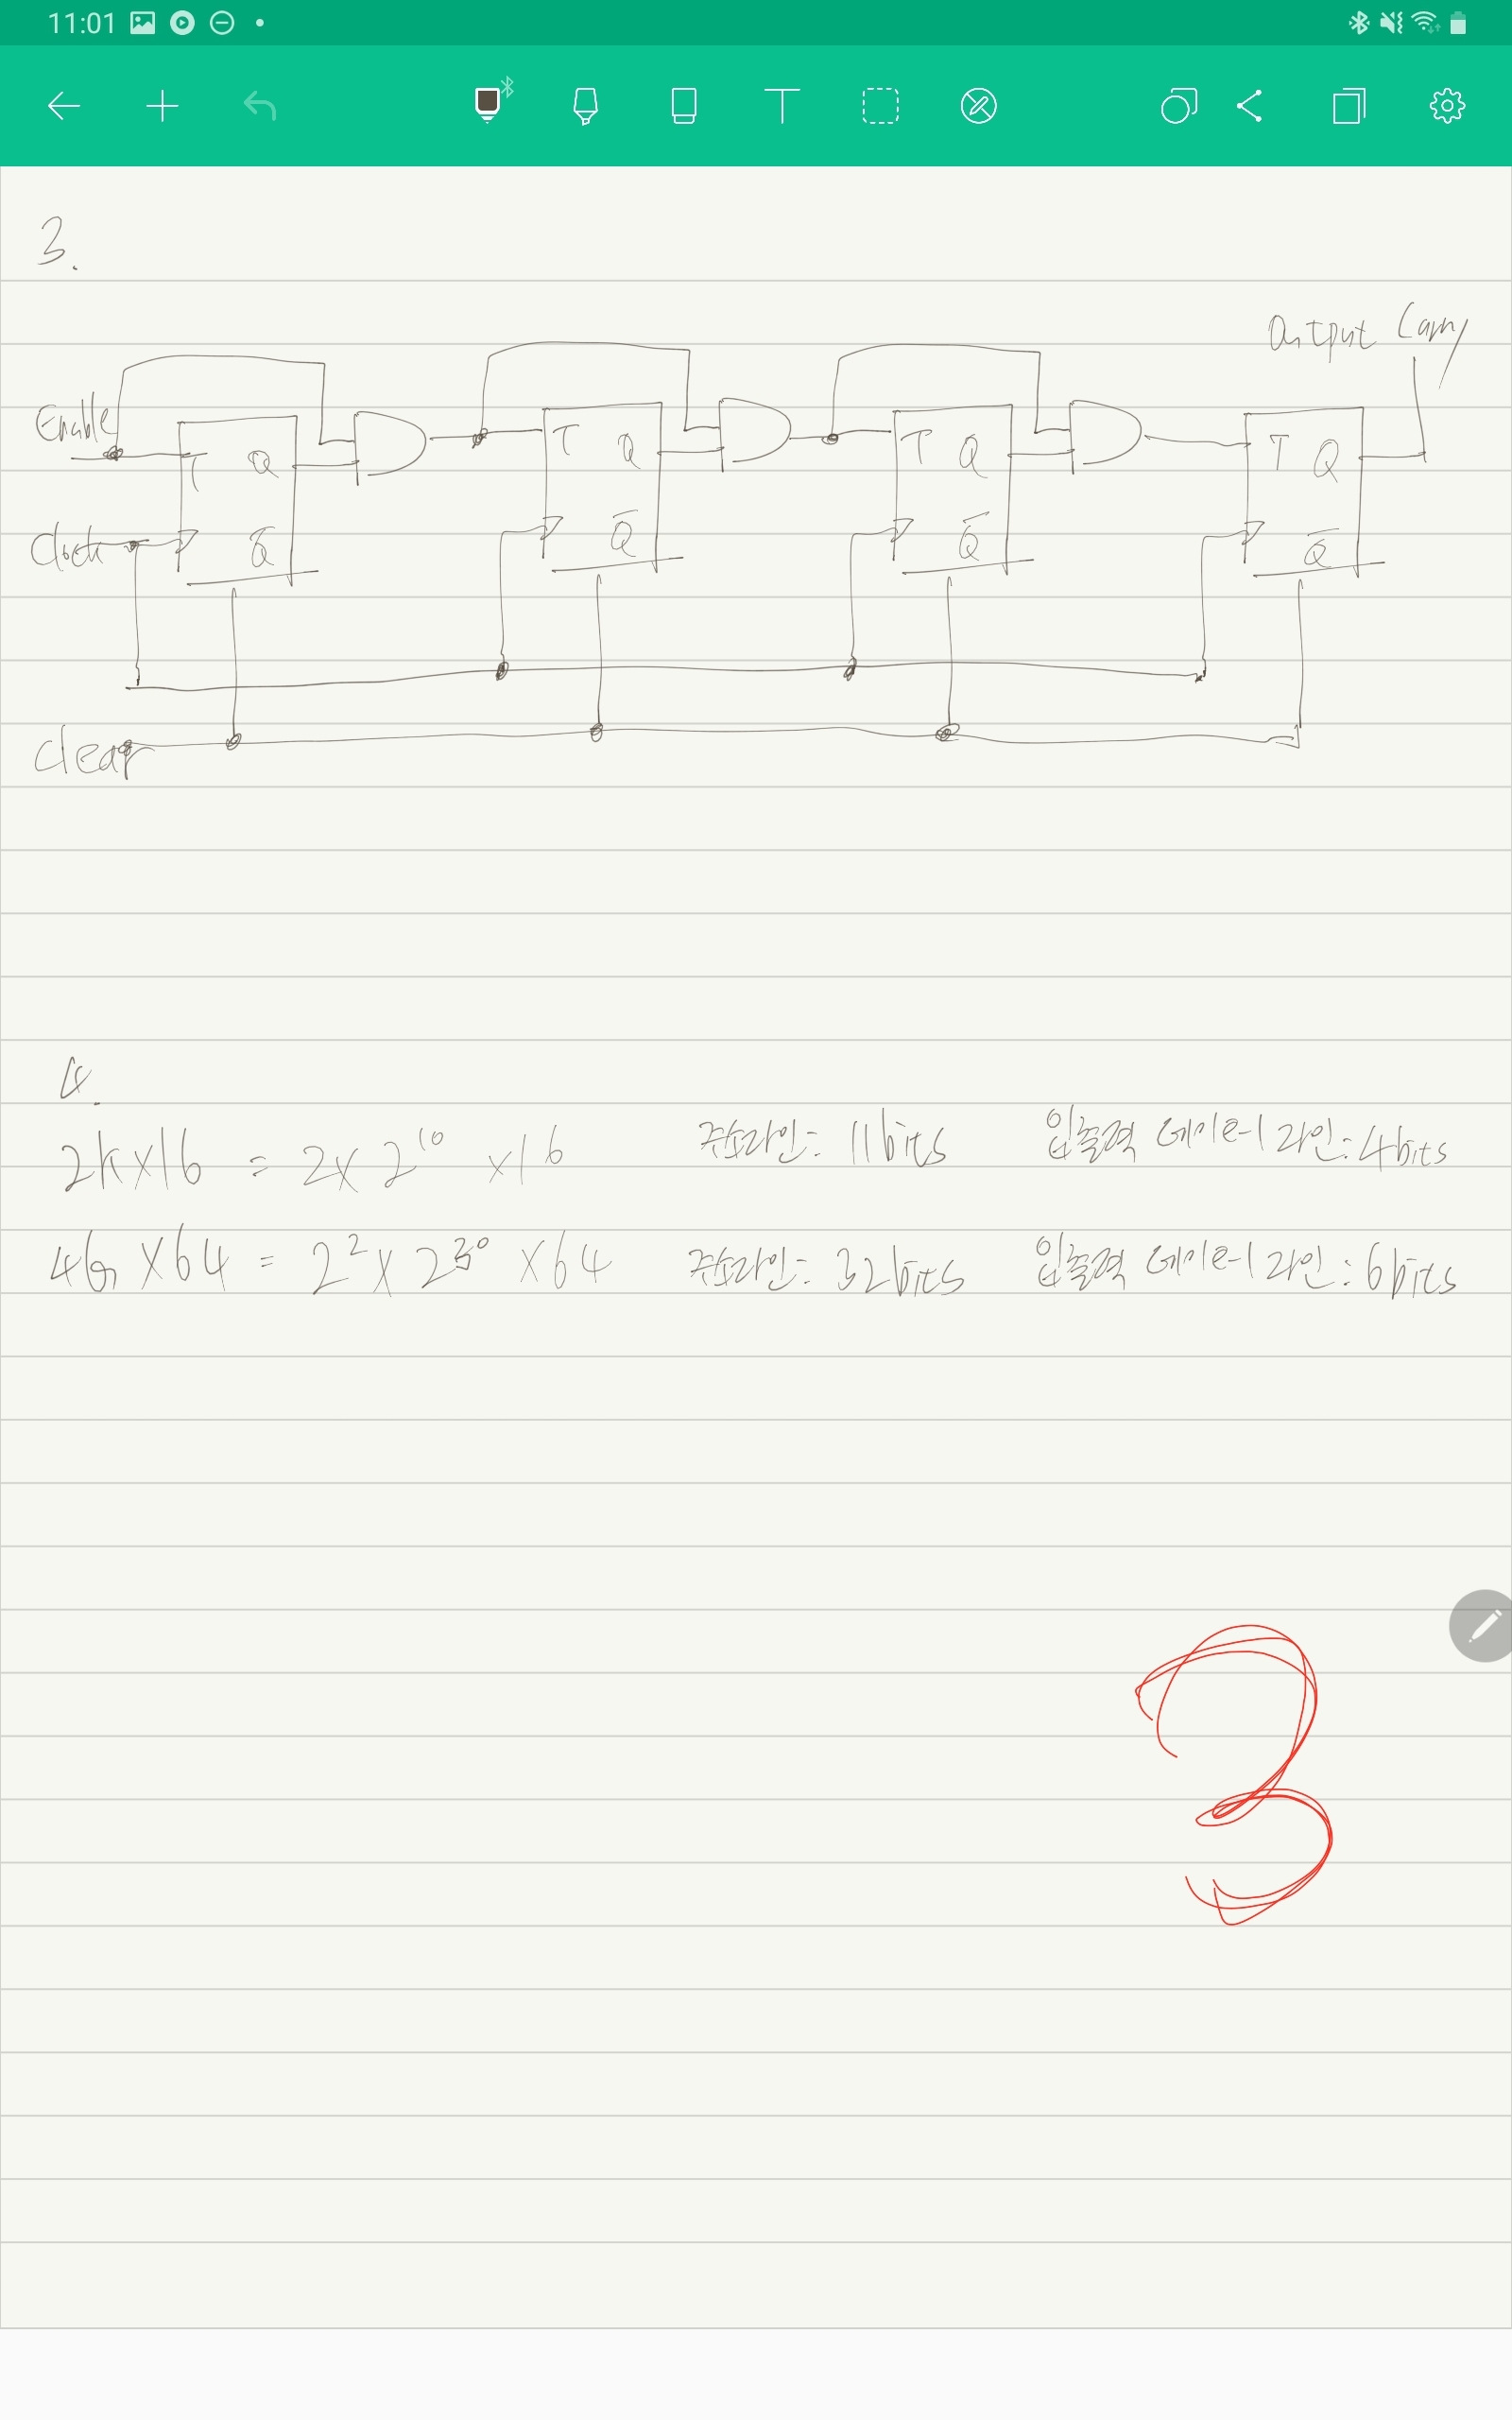 11:01
3.
Output Carry
Enable
T Q T Q T Q T Q
Clock Q̅ Q̅ Q̅ Q̅
Clear
4.
2k×16 = 2×2¹⁰ ×16 주소라인: 11bits 입출력 데이터 라인: 4bits
4G ×64 = 2²×2³⁰ ×64 주소라인: 32bits 입출력 데이터 라인: 6bits
3